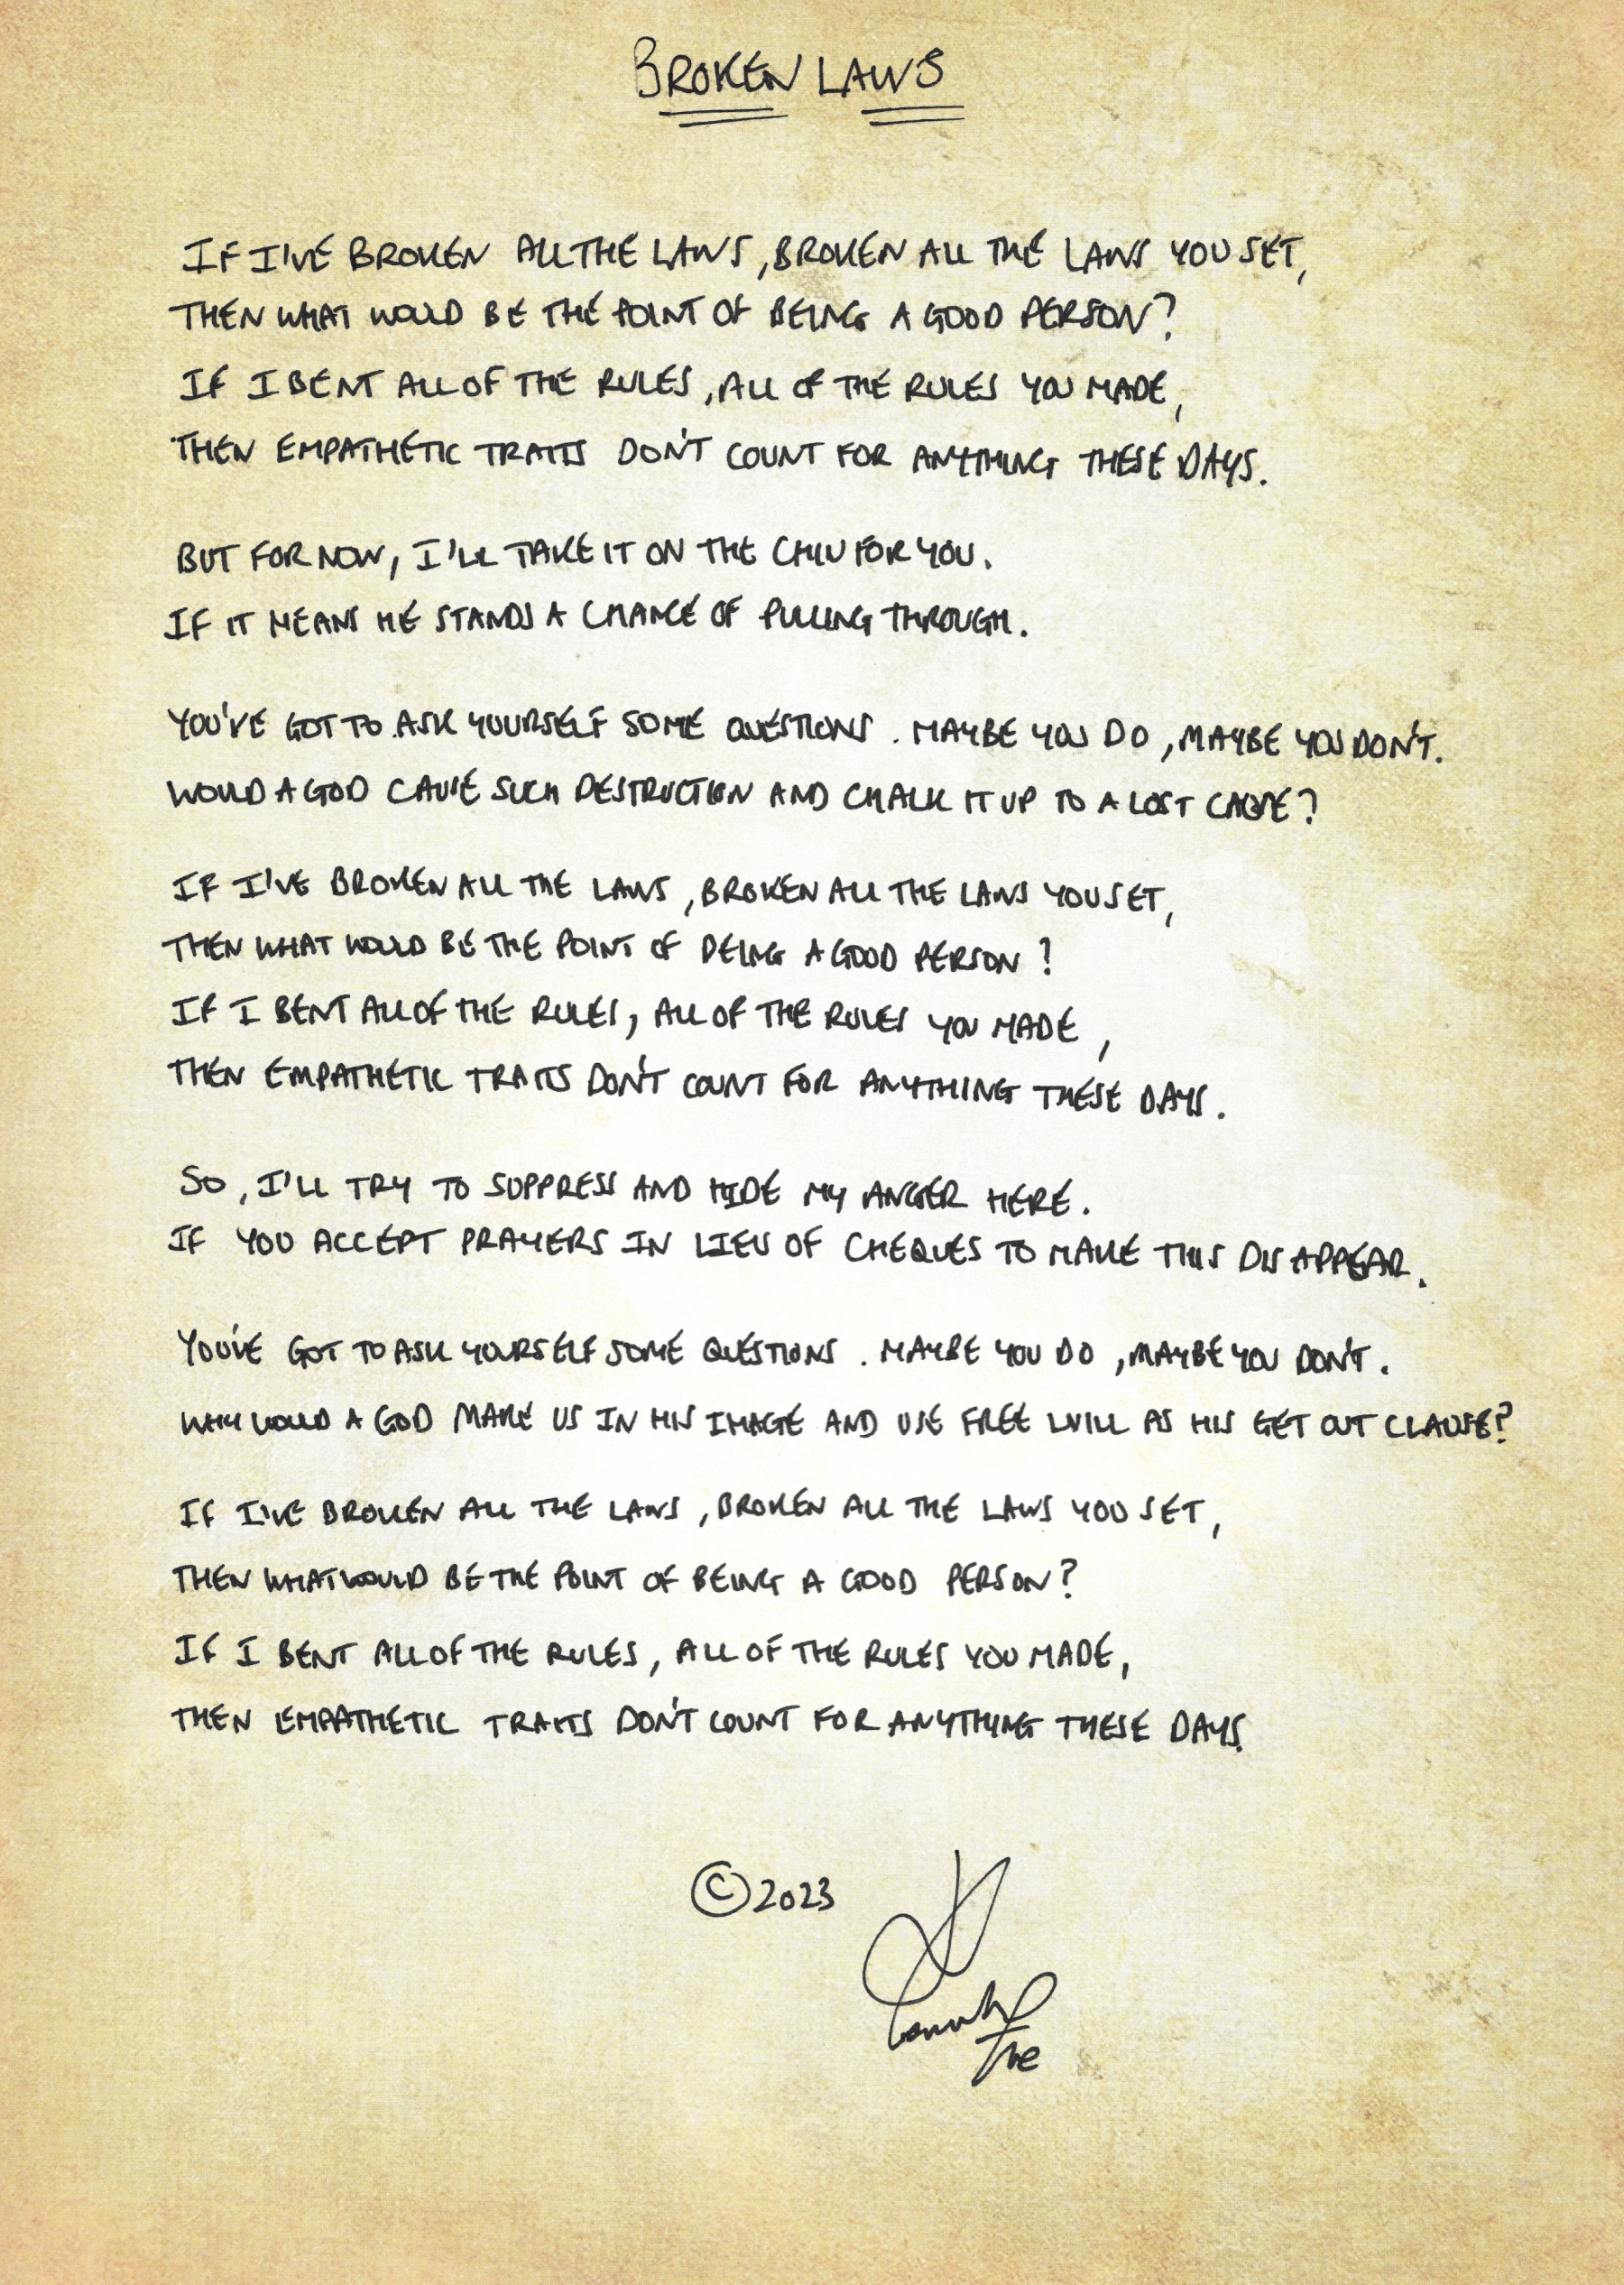 BROKEN LAWS
IF I'VE BROKEN ALL THE LAWS, BROKEN ALL THE LAWS YOU SET,
THEN WHAT WOULD BE THE POINT OF BEING A GOOD PERSON?
IF I BENT ALL OF THE RULES, ALL OF THE RULES YOU MADE,
THEN EMPATHETIC TRAITS DON'T COUNT FOR ANYTHING THESE DAYS.
BUT FOR NOW, I'LL TAKE IT ON THE CHIN FOR YOU.
IF IT MEANS HE STANDS A CHANCE OF PULLING THROUGH.
YOU'VE GOT TO ASK YOURSELF SOME QUESTIONS. MAYBE YOU DO, MAYBE YOU DON'T.
WOULD A GOD CAUSE SUCH DESTRUCTION AND CHALK IT UP TO A LOST CAUSE?
IF I'VE BROKEN ALL THE LAWS, BROKEN ALL THE LAWS YOU SET,
THEN WHAT WOULD BE THE POINT OF BEING A GOOD PERSON?
IF I BENT ALL OF THE RULES, ALL OF THE RULES YOU MADE,
THEN EMPATHETIC TRAITS DON'T COUNT FOR ANYTHING THESE DAYS.
SO, I'LL TRY TO SUPPRESS AND HIDE MY ANGER HERE.
IF YOU ACCEPT PRAYERS IN LIEU OF CHEQUES TO MAKE THIS DISAPPEAR.
YOU'VE GOT TO ASK YOURSELF SOME QUESTIONS. MAYBE YOU DO, MAYBE YOU DON'T.
WHY WOULD A GOD MAKE US IN HIS IMAGE AND USE FREE WILL AS HIS GET OUT CLAUSE?
IF I'VE BROKEN ALL THE LAWS, BROKEN ALL THE LAWS YOU SET,
THEN WHAT WOULD BE THE POINT OF BEING A GOOD PERSON?
IF I BENT ALL OF THE RULES, ALL OF THE RULES YOU MADE,
THEN EMPATHETIC TRAITS DON'T COUNT FOR ANYTHING THESE DAYS.
©2023